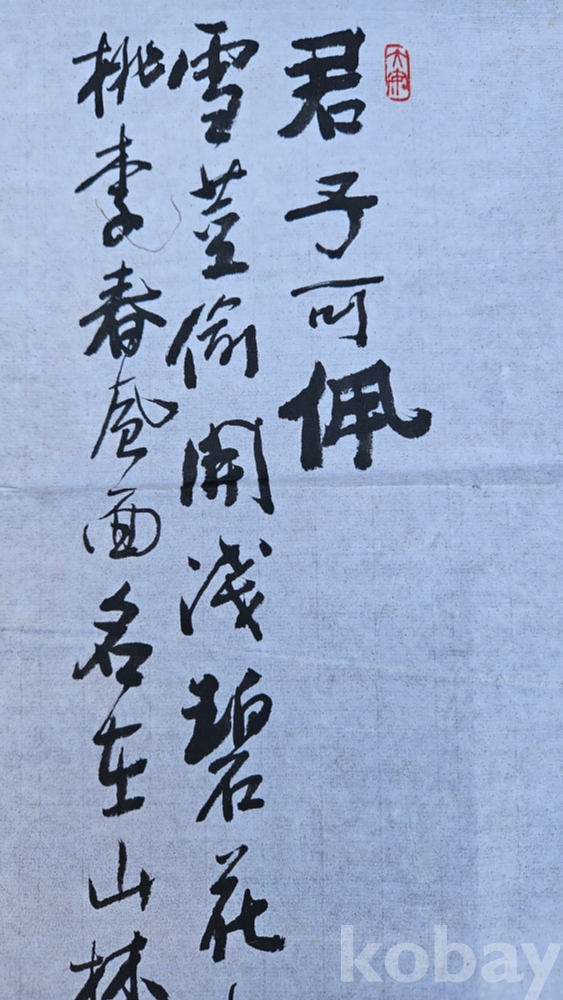 君子可佩
雪莖偷開淺碧花
桃李春風面名在山林
kobay